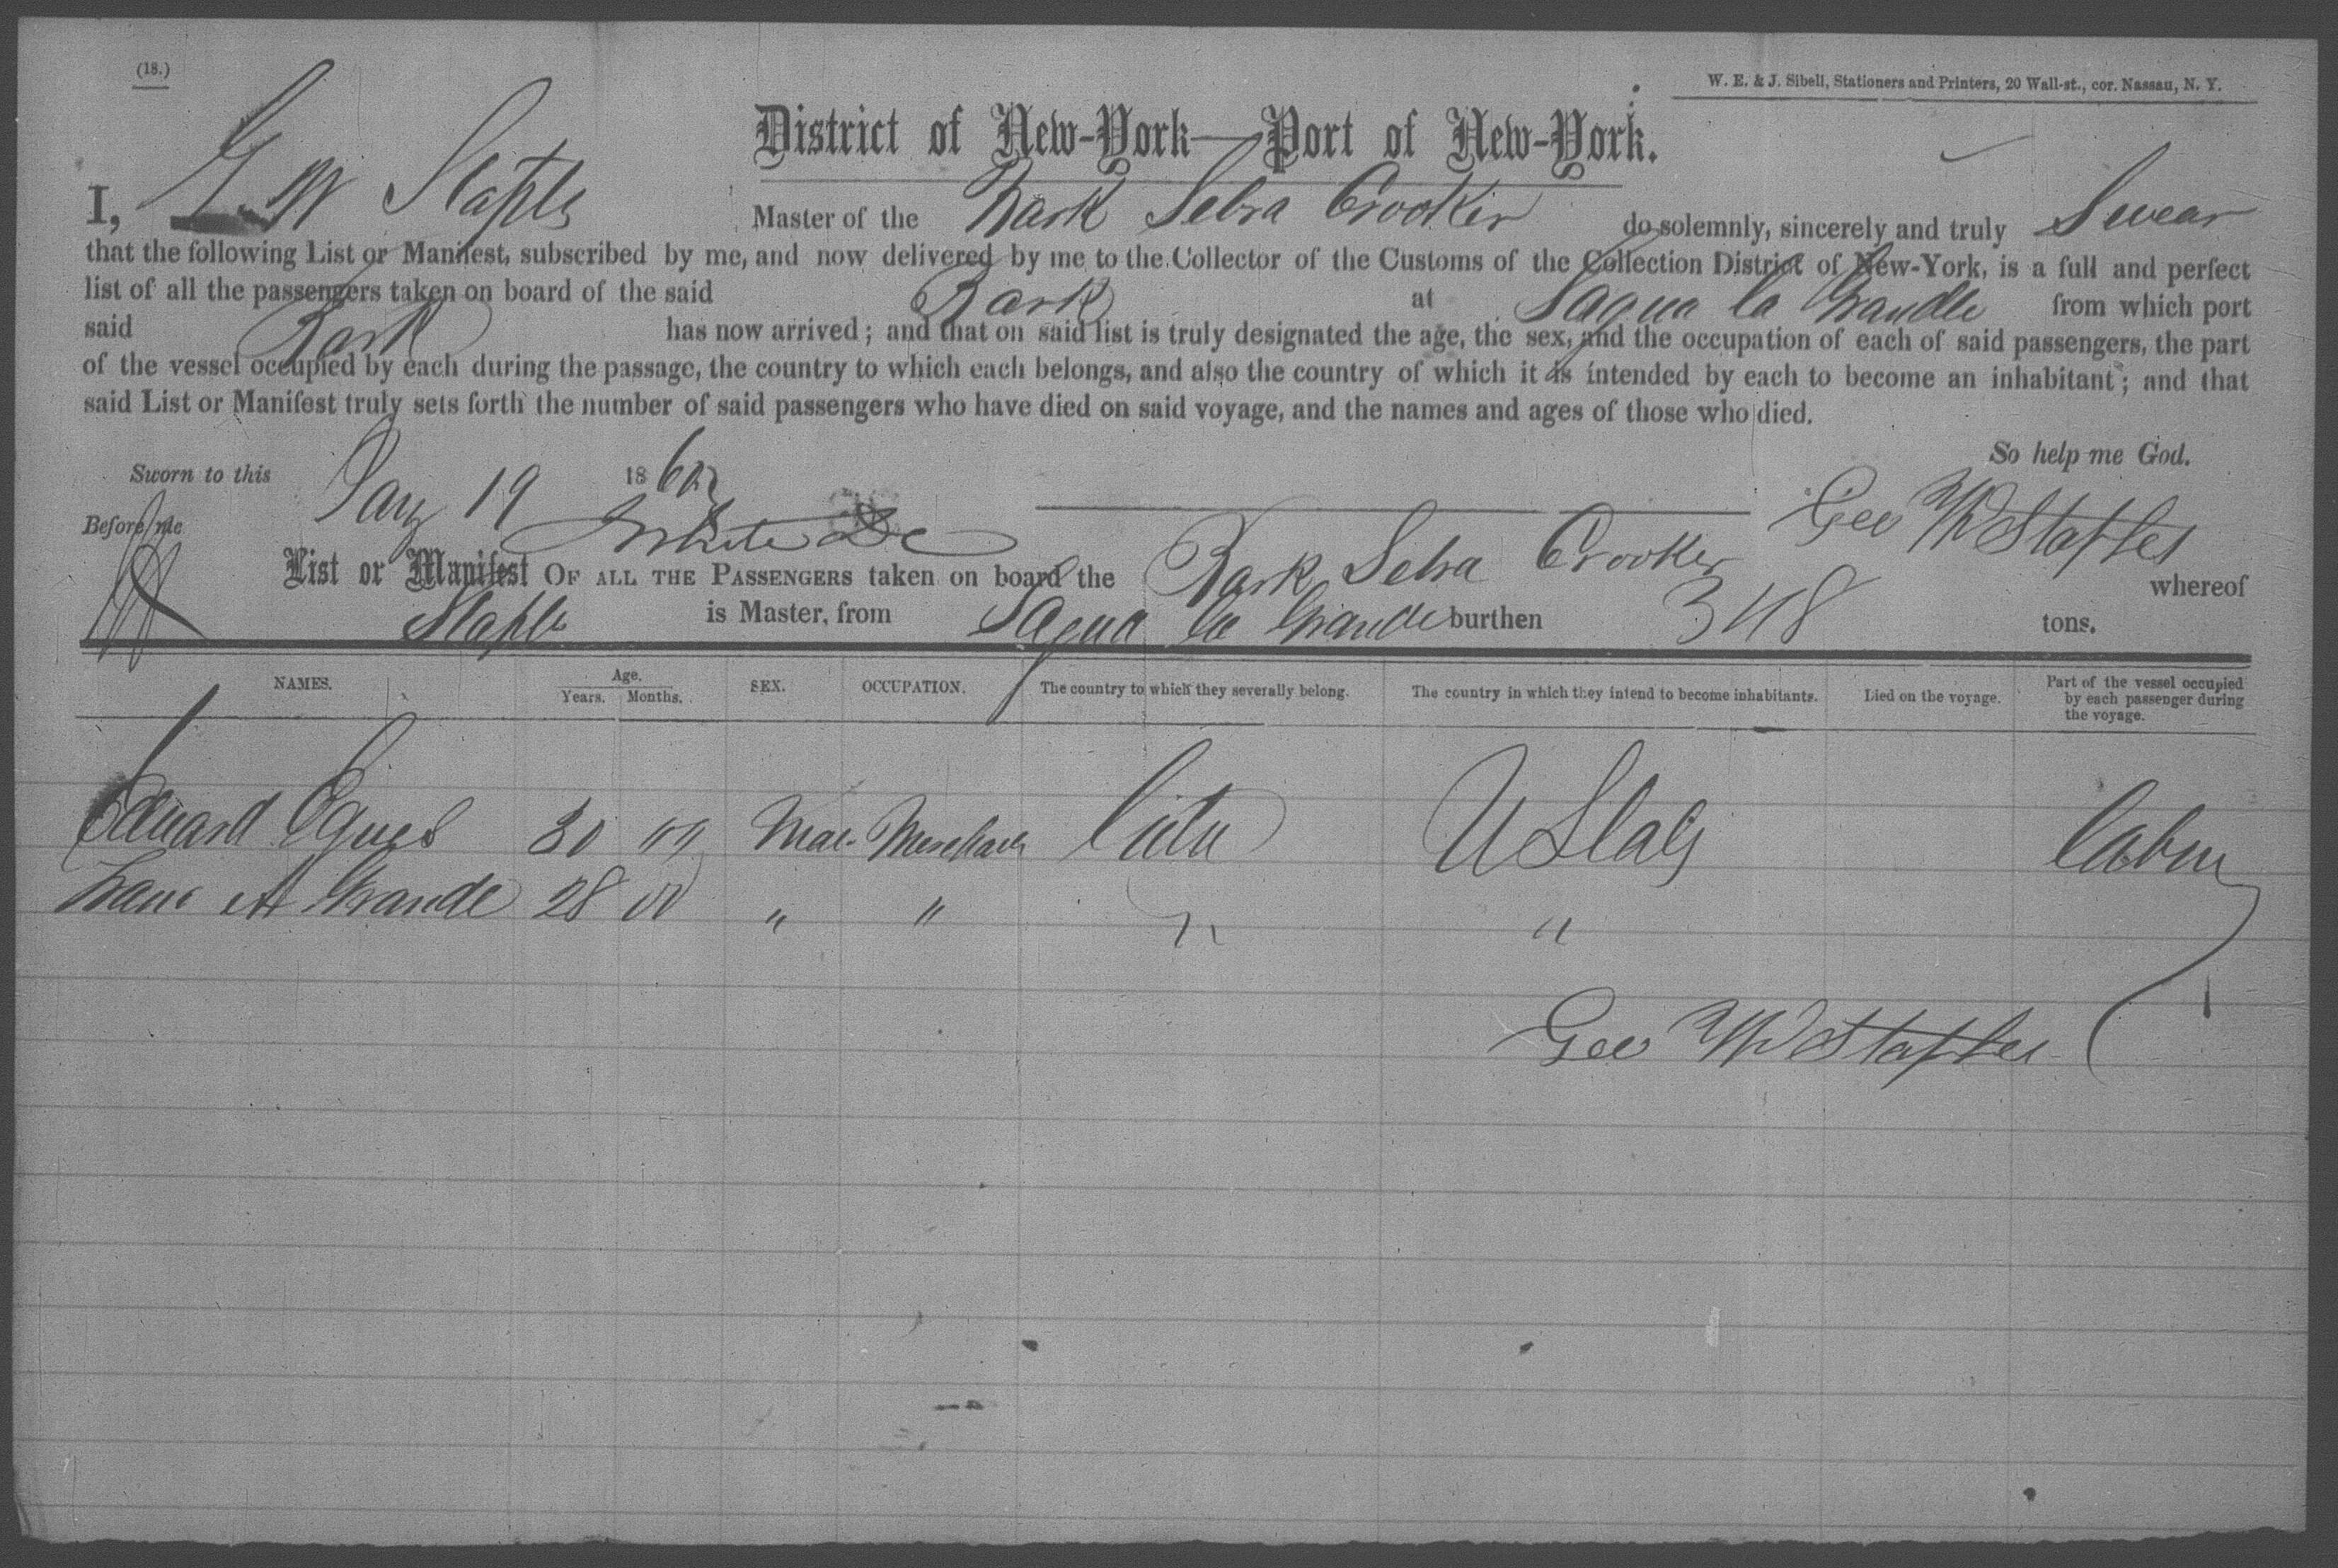 (18.)
W. E. & J. Sibell, Stationers and Printers, 20 Wall-st., cor. Nassau, N. Y.
District of New-York—Port of New-York.
I, G. W Staples Master of the Bark Sebra Crooker do solemnly, sincerely and truly Swear
that the following List or Manifest, subscribed by me, and now delivered by me to the Collector of the Customs of the Collection District of New-York, is a full and perfect
list of all the passengers taken on board of the said Bark at Sagua la Grande from which port
said Bark has now arrived; and that on said list is truly designated the age, the sex, and the occupation of each of said passengers, the part
of the vessel occupied by each during the passage, the country to which each belongs, and also the country of which it is intended by each to become an inhabitant; and that
said List or Manifest truly sets forth the number of said passengers who have died on said voyage, and the names and ages of those who died.
So help me God.
Sworn to this Jany 19 186
Before me White Geo W Staples
List or Manifest OF ALL THE PASSENGERS taken on board the Bark Sebra Crooker whereof
Staples is Master, from Sagua la Grande burthen 348 tons.
NAMES. Age. Years. Months. SEX. OCCUPATION. The country to which they severally belong. The country in which they intend to become inhabitants. Died on the voyage. Part of the vessel occupied by each passenger during the voyage.
Eduard Eques 30 00 Mal. Merchant Cuba U States Cabin
A Grande 28 00 " " " "
Geo W Staples